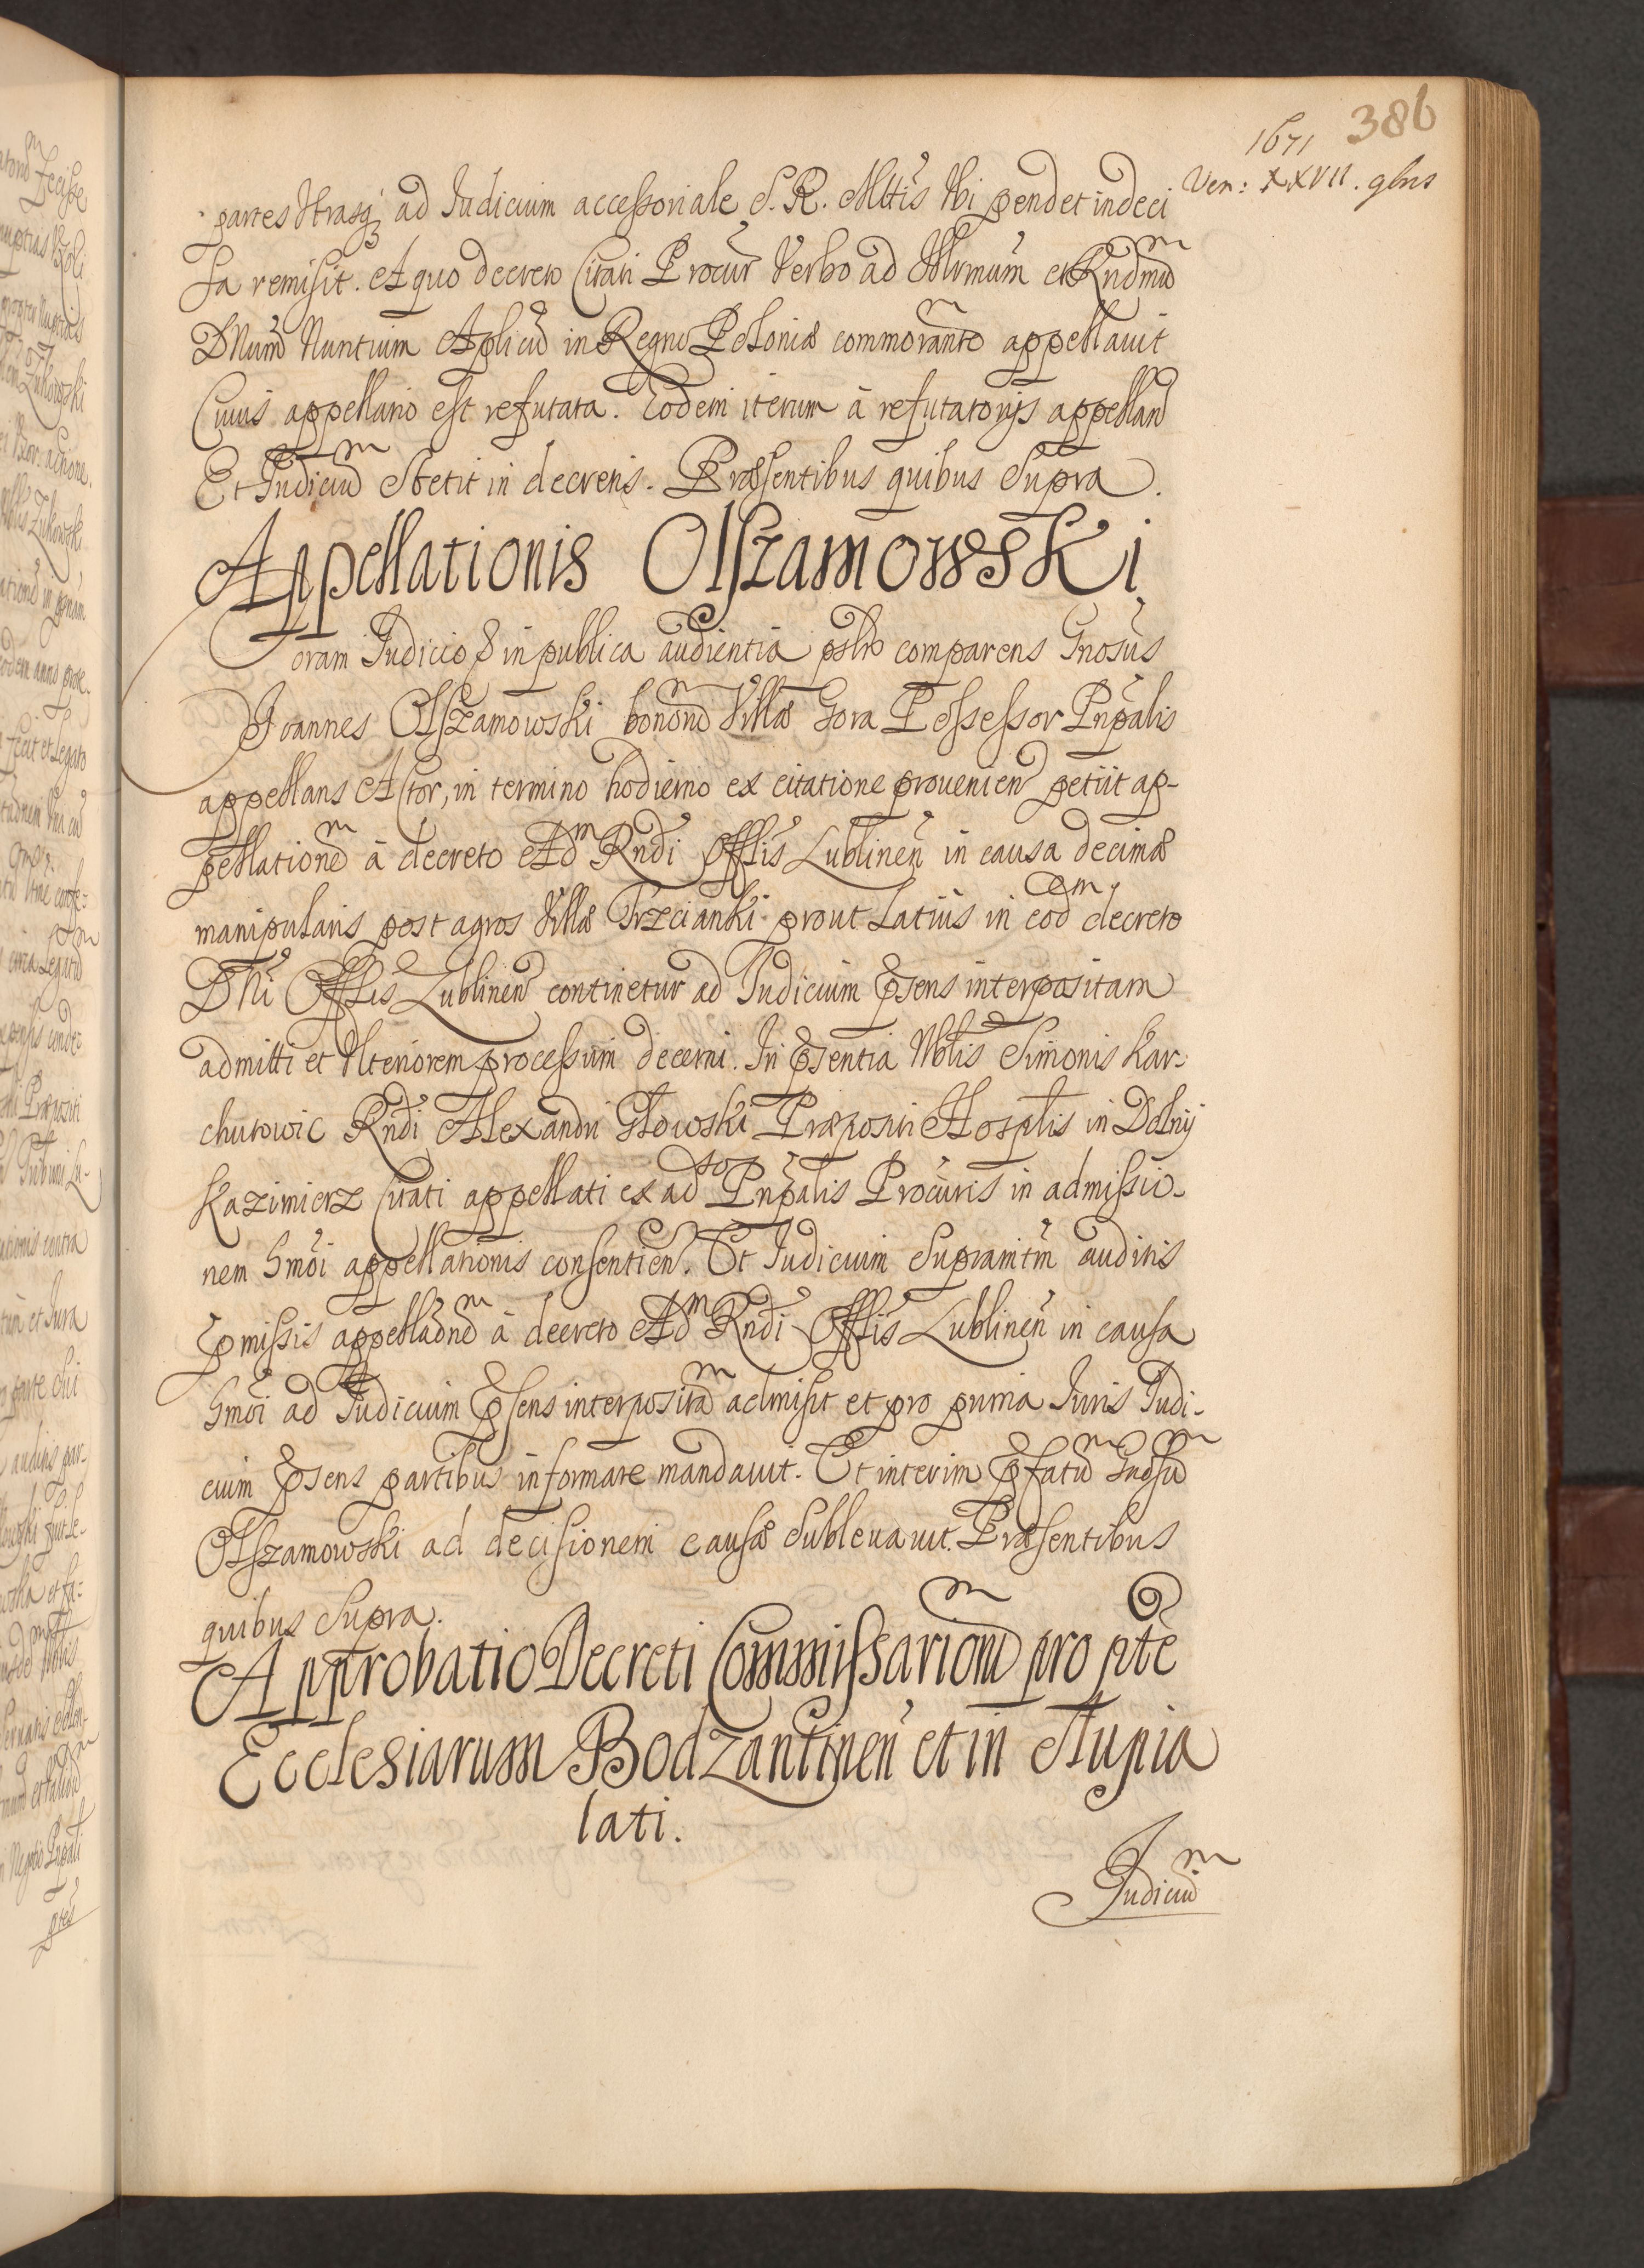 386
1671
Ven: XXVII. 9bris
partes Utrasq; ad Judicium accessoriale S. R. Mttis Ubi pendet indeci
sa remisit. A quo decreto Citati Procur Verbo ad Illrmum et Rndmu
DNum Nuntium Aplicu in Regno Poloniæ commorante appellauit
Cuius appellatio est refutata. Eodem iterum à refutatorijs appelland
Et Judiciu Stetit in decretis. Præsentibus quibus Supra.
Appellationis Olszamowski
Coram Judicio & in publica audientia pslr comparens Gnosus
Joannes Olszamowski bonoru Villæ Gora Possessor Pnpalis
appellans Actor, in termino hodierno ex citatione prouenien petiit ap-
pellatione à decreto Ad m Rndi Offlis Lublinen in causa decimæ
manipularis post agros Villæ Trzcianki prout Latius in eod em decreto
DNi Offlis Lublinen continetur ad Judicium psens interpositam
admitti et Ulteriorem processum decerni. In psentia Nblis Simonis Kar-
chutowic Rndi Alexandri Głowski Præpositi Hosptlis in Dolnij
Kazimierz Citati appellati ex ad so Pnpalis Procuris in admissio-
nem Hmoi appellationis consentien. Et Judicium Supramtm auditis
pmissis appellaone à decreto Ad m Rndi Offlis Lublinen in causa
Hmoi ad Judicium psens interposita admisit et pro prima Juris Judi-
cium psens partibus informare mandauit. Et interim pfatu Gnosu
Olszamowski ad decisionem causæ Subleuauit. Præsentibus
quibus Supra.
Approbatio Decreti Commissarioru pro pte
Ecclesiarum Bodzantinen et in Stupia
lati.
Judiciu